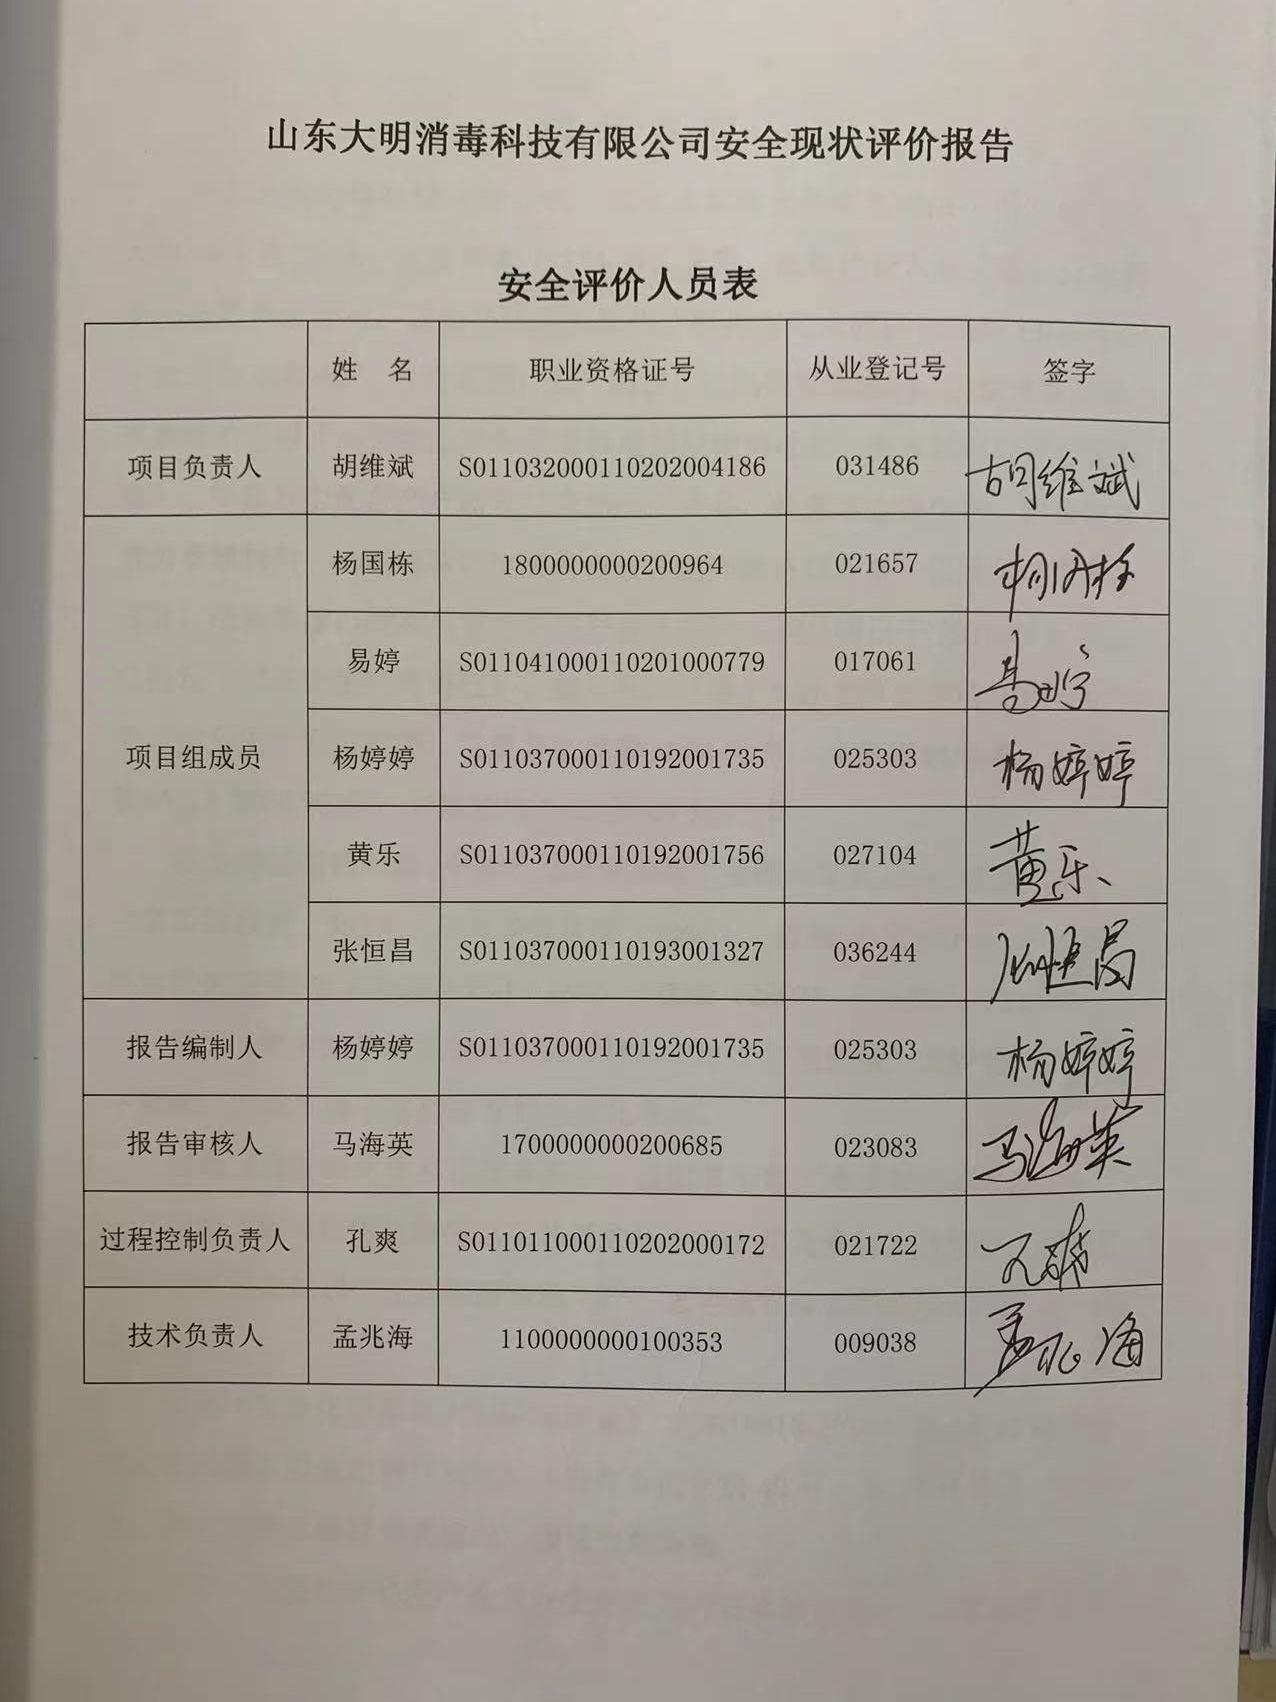 山东大明消毒科技有限公司安全现状评价报告
安全评价人员表
姓 名 职业资格证号 从业登记号 签字
项目负责人 胡维斌 S011032000110202004186 031486 胡维斌
项目组成员
杨国栋 1800000000200964 021657 杨国栋
易婷 S011041000110201000779 017061 易婷
杨婷婷 S011037000110192001735 025303 杨婷婷
黄乐 S011037000110192001756 027104 黄乐
张恒昌 S011037000110193001327 036244 张恒昌
报告编制人 杨婷婷 S011037000110192001735 025303 杨婷婷
报告审核人 马海英 1700000000200685 023083 马海英
过程控制负责人 孔爽 S011011000110202000172 021722 孔爽
技术负责人 孟兆海 1100000000100353 009038 孟兆海